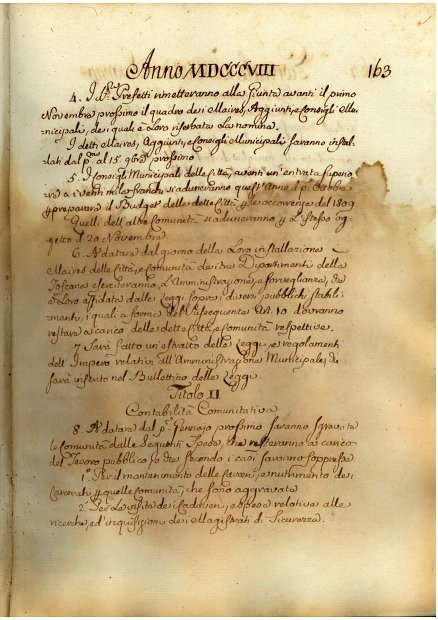 Anno MDCCCVIII
163
4. I SS.ri Prefetti rimetteranno alla Giunta avanti il primo
Novembre prossimo il quadro dei Maires, Aggiunti, e Consigli Mu-
nicipali, dei quali è Loro riserbata La nomina.
I detti Maires, Aggiunti, e Consigli Municipali saranno instal-
lati dal p.mo al 15 9bre prossimo
5. I Consigli Municipali delle Città, aventi un'entrata superio-
re a i venti mila franchi si aduneranno quest'Anno il p.mo Ottobre
p preparare il Budget delle dette Città, p le occorrenze del 1809
Quelli dell'altre Comunità si aduneranno p L'istesso og-
getto il 20 Novembre
6. A datare dal giorno della Loro installazione
Maires delle Città, e Comunità dei tre Dipartimenti della
Toscana eserciteranno L'Amministrazione, e sorveglianza, che
è Loro affidata dalle Leggi sopra i diversi pubblici stabili-
menti, i quali a forma dell'susseguente Art. 10 dovranno
restare a carico delle dette Città, e Comunità respettive.
7 Sarà fatto un estratto delle Leggi, e regolamenti
dell'Impero relativi all'Amministrazione Municipale, che
sarà inserito nel Bullettino delle Leggi.
Titolo II
Contabilità Comunitativa
8. A datare dal p.mo Gennajo prossimo saranno sgravate
le comunità dalle seguenti spese, che resteranno a carico
del Tesoro pubblico, o che secondo i casi saranno soppresse
1.° Per il mantenimento delle carceri, e nutrimento dei
Carcerati p quelle comunità, che sono aggravate
2.° Per La visita dei Cadaveri, e spese relative alle
ricerche, ed inquisizioni dei Magistrati di Sicurezza.